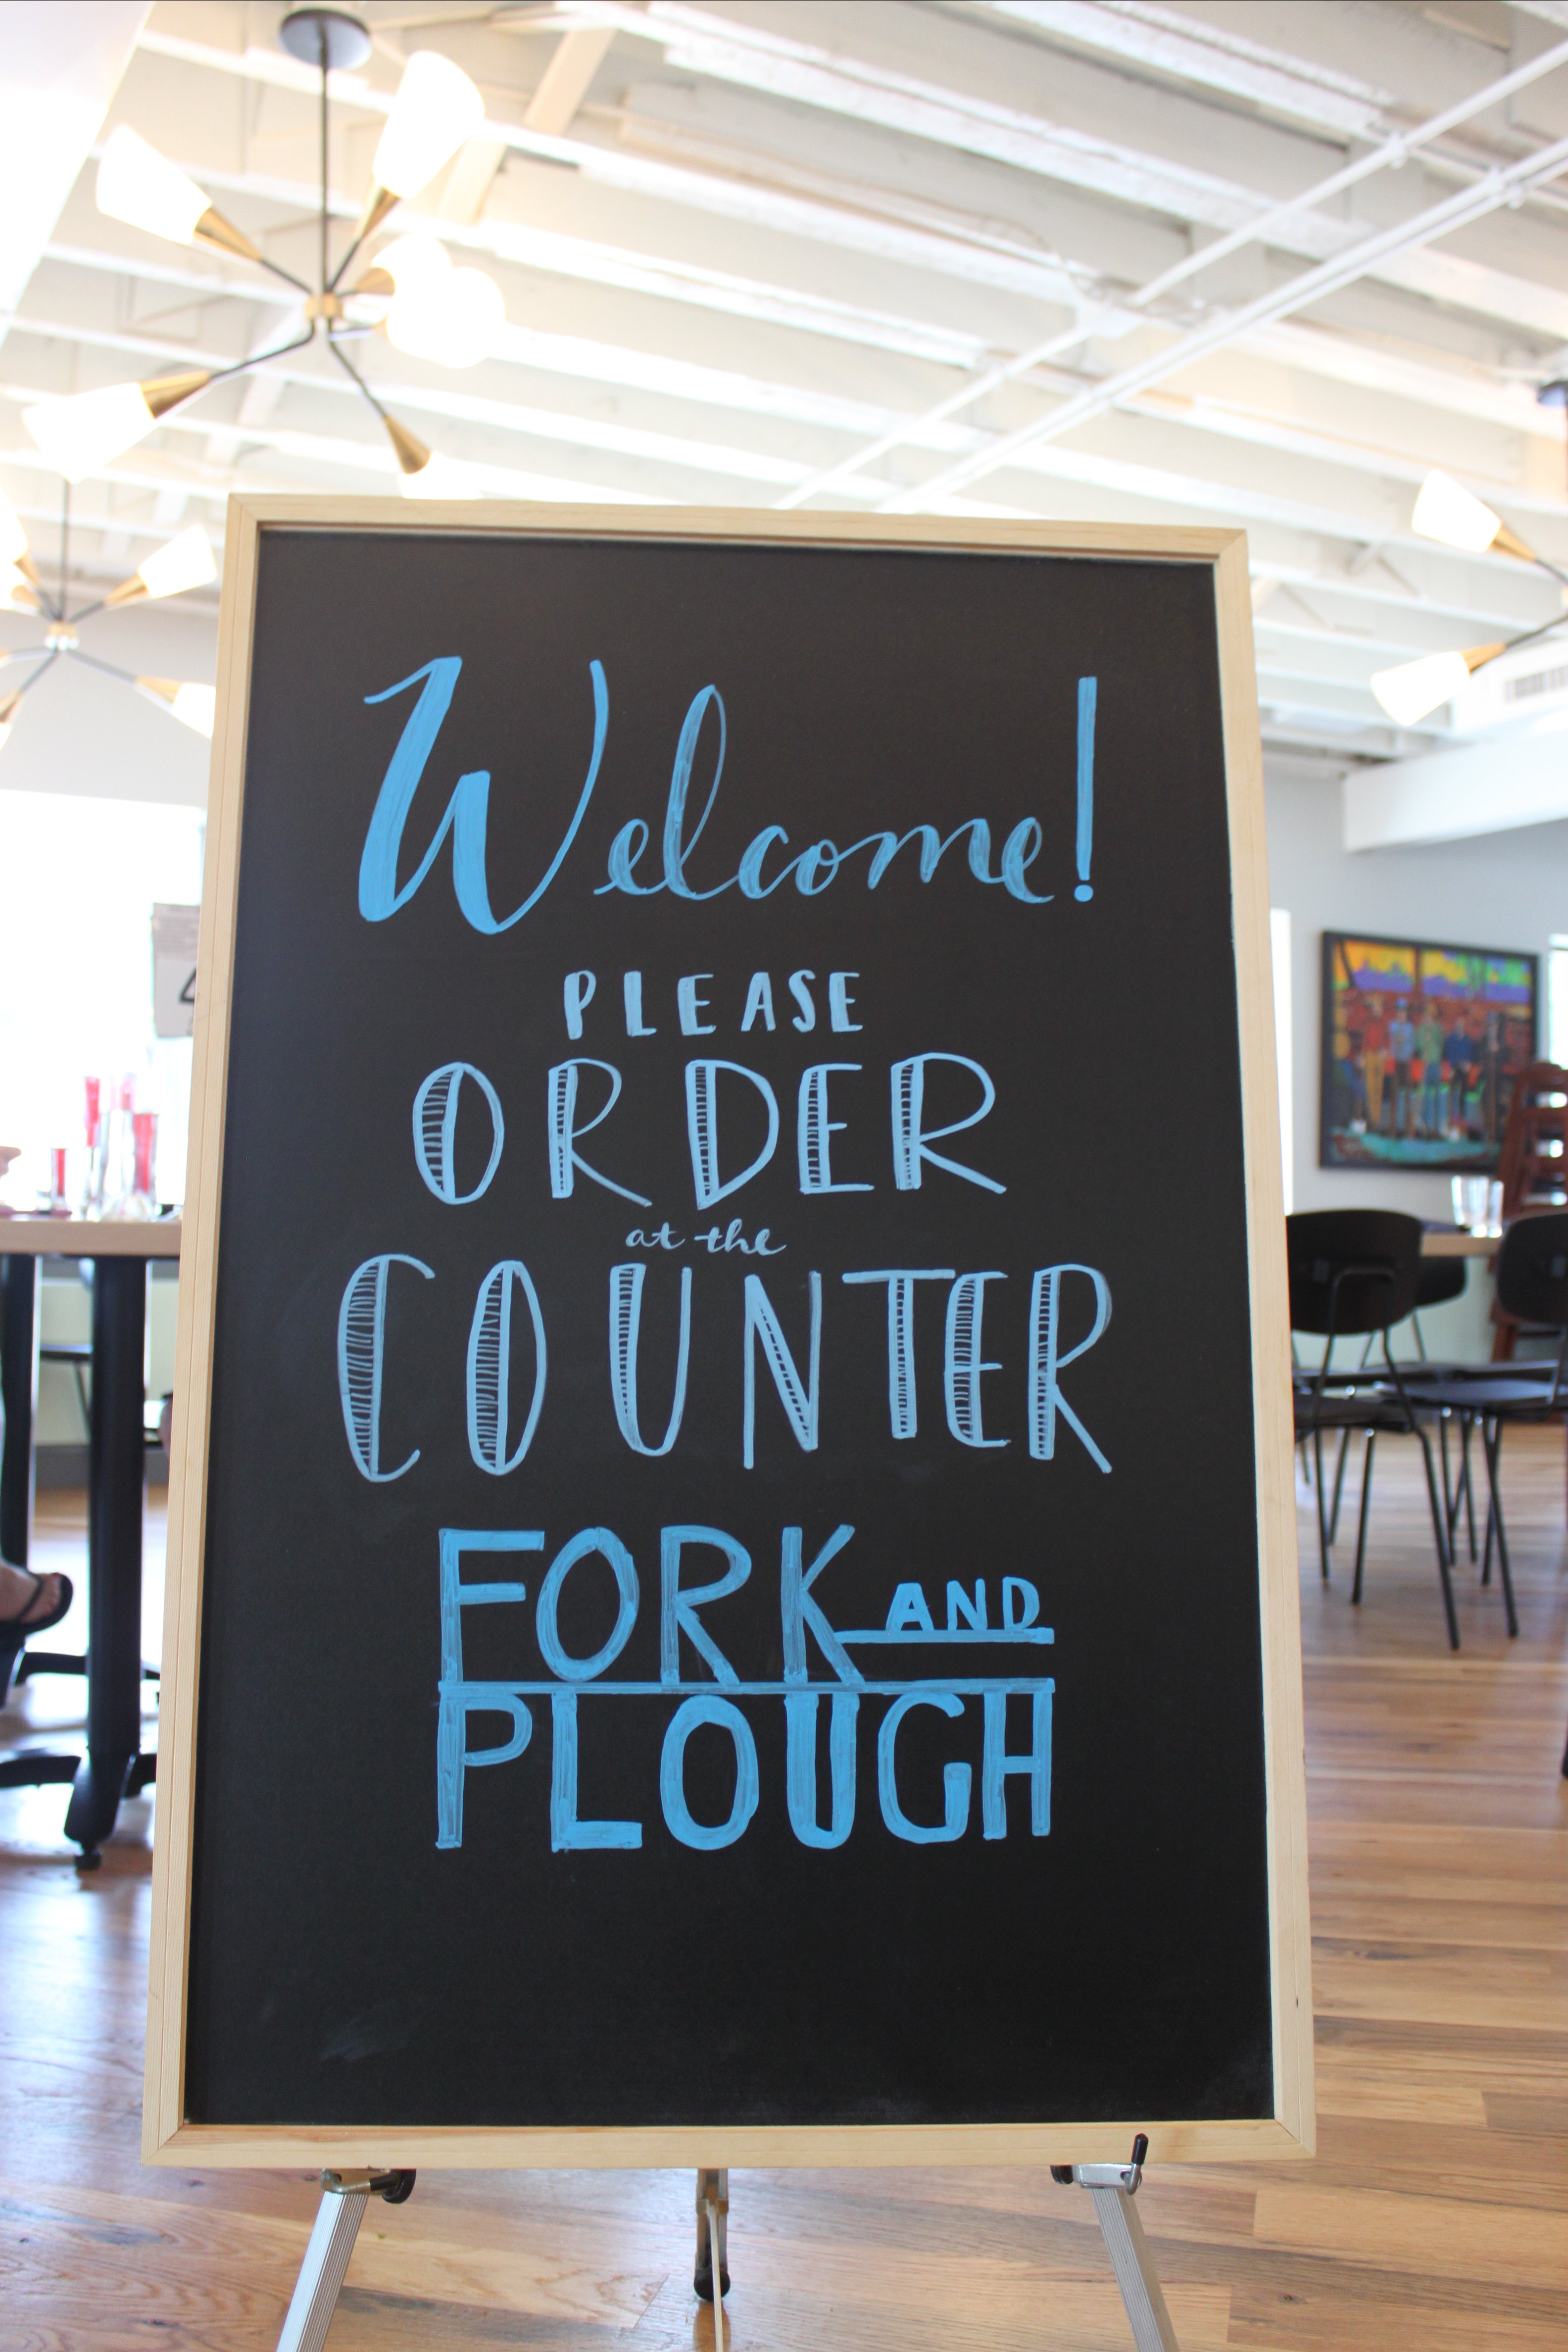 Welcome!
PLEASE
ORDER
at the
COUNTER
FORK AND
PLOUGH